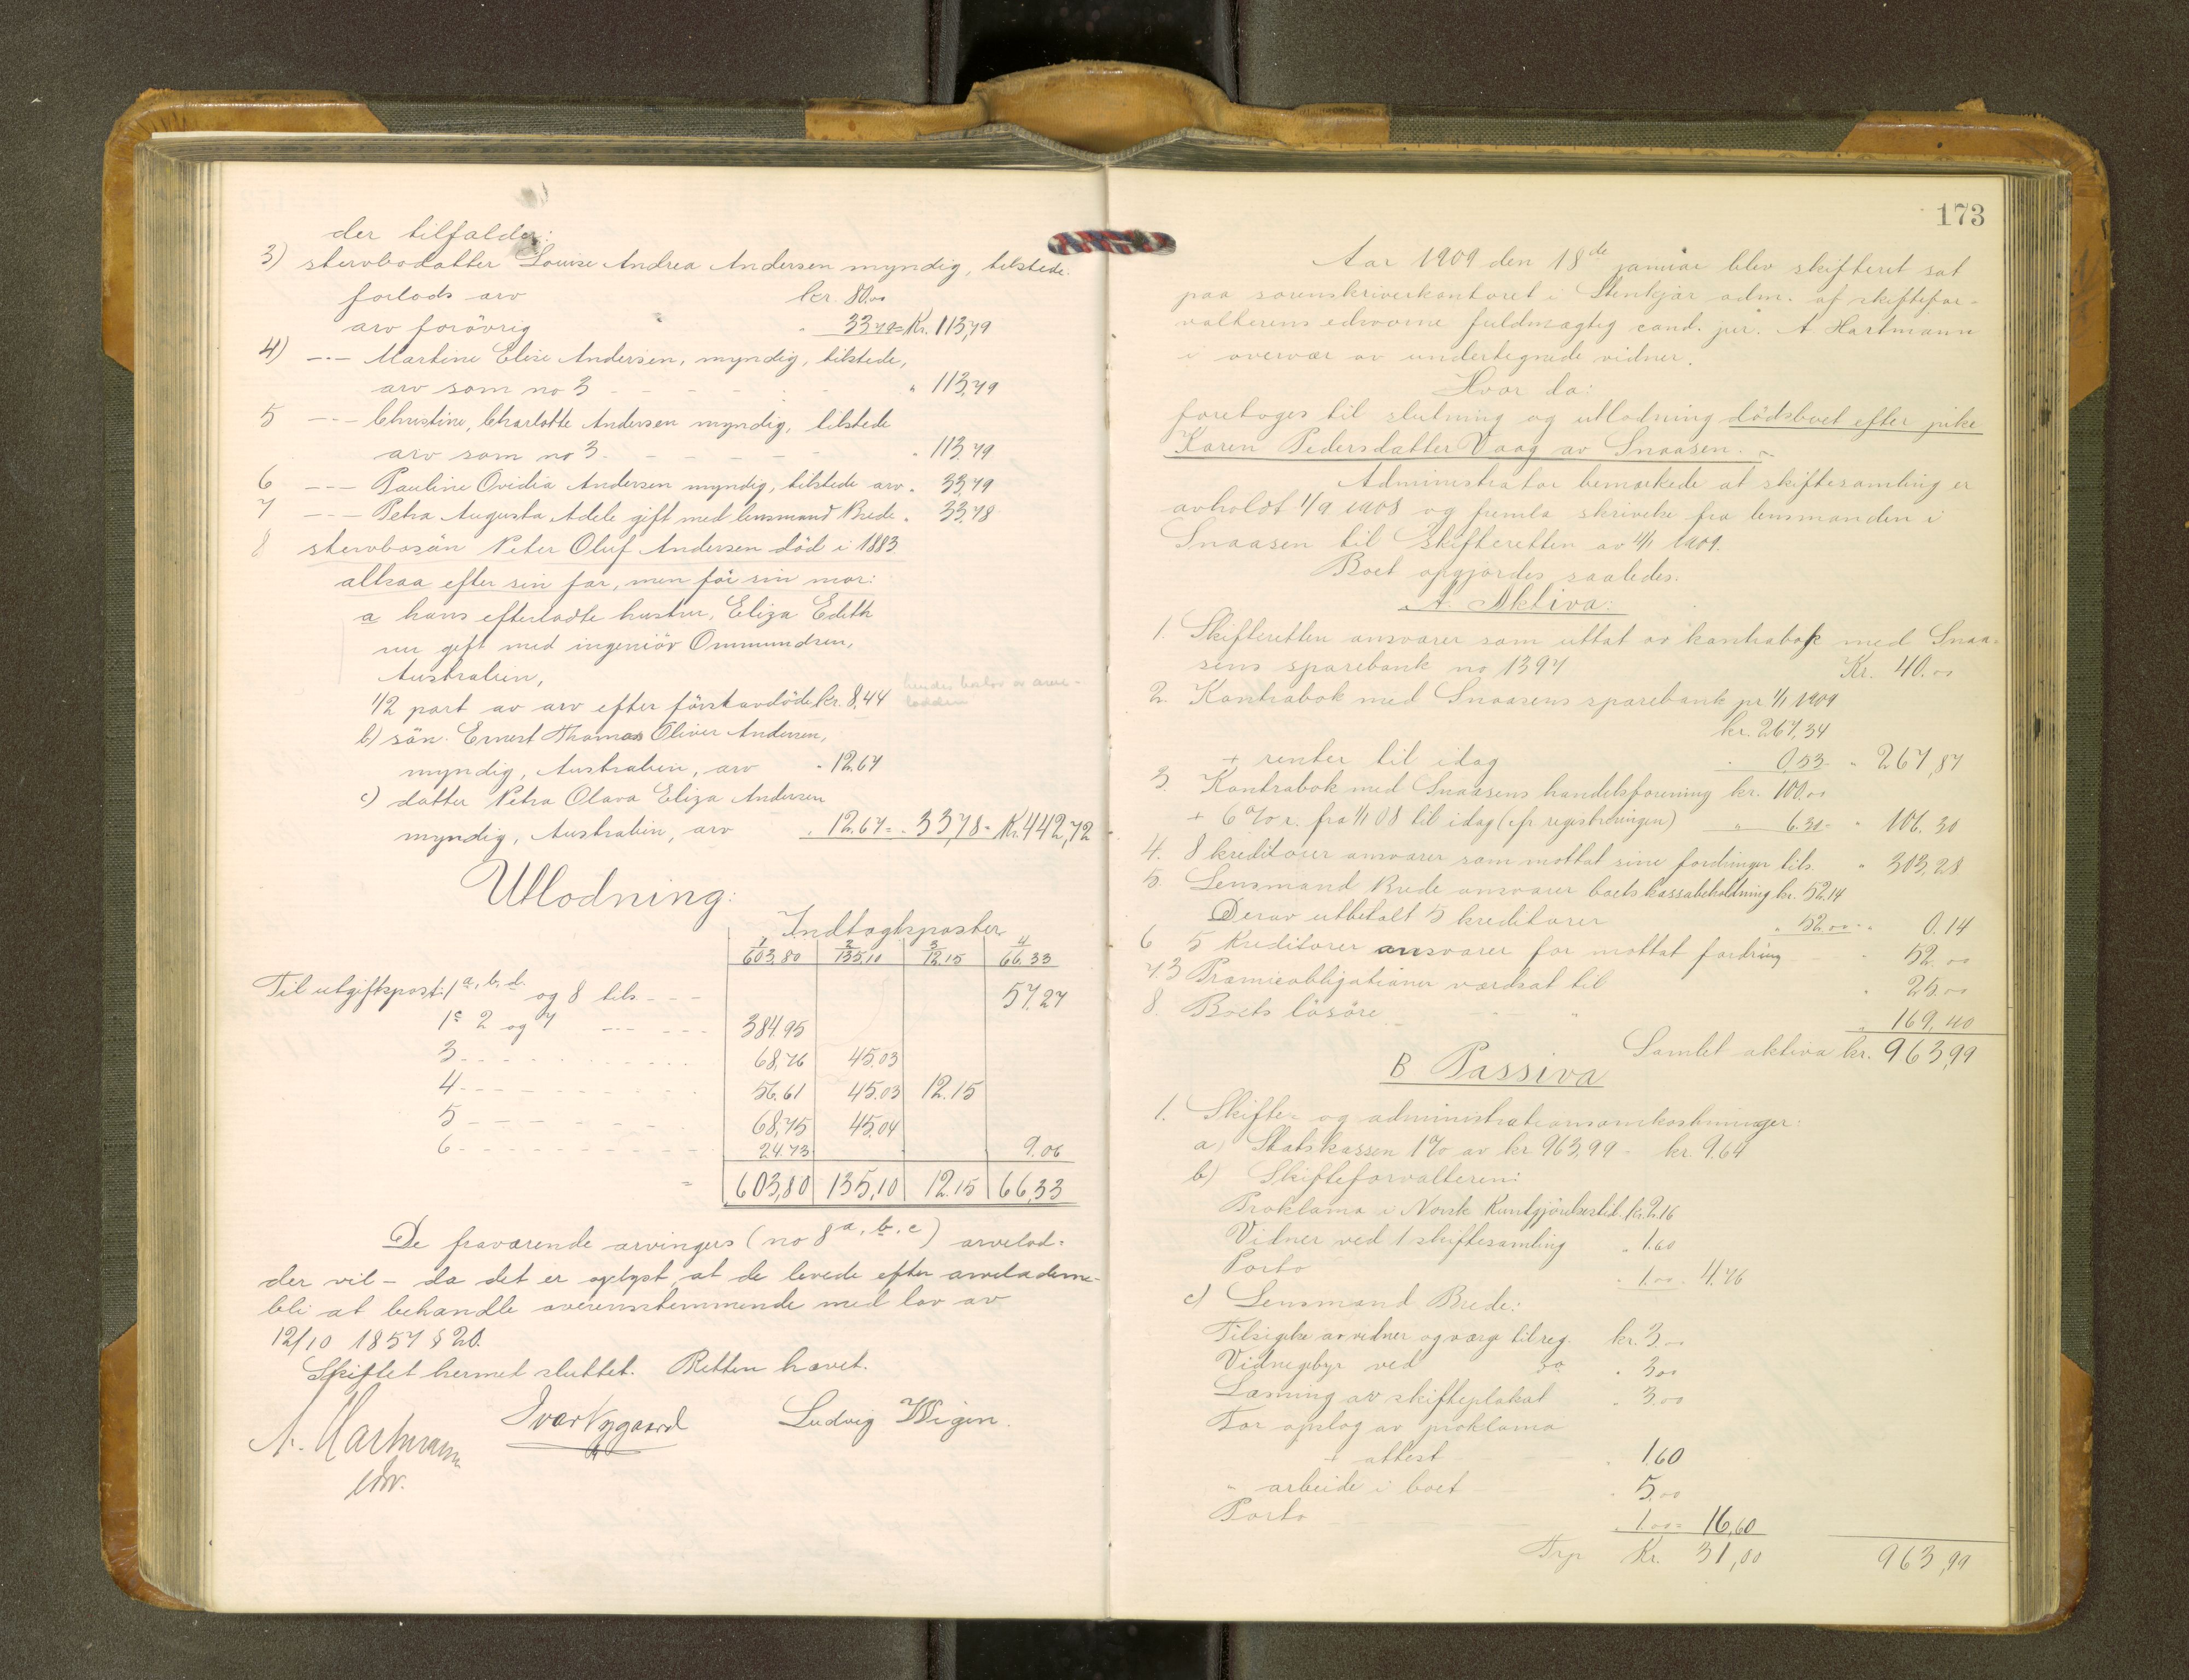 der tilfalder:
3) stervbodatter Louise Andrea Andersen myndig, tilstede.
forlods arv kr. 80.00
arv forövrig " 33.79 = Kr. 113,79
4) -"- Martine Elise Andersen, myndig, tilstede,
arv som no 3 - - - - - " 113,79
5 -"- Christine, Charlotte Andersen myndig, tilstede
arv som no 3 - - - - - " 113.79
6 -"- Pauline Ovidia Andersen myndig, tilstede arv " 33,79
7 -"- Petra Augusta Adele gift med lensmand Brede " 33,78
8 stervbosön Peter Oluf Andersen död i 1883
altsaa efter sin far, men för sin mor:
a hans efterladte hustru, Eliza Edith
nu gift med ingeniör Ommundsen,
Australien,
1/2 part av arv efter förstavdöde kr. 8,44
b) sön. Ernest Thomas Oliver Andersen,
myndig, Australien, arv " 12.67
c) datter Petra Olava Eliza Andersen
myndig, Australien, arv " 12.67 = " 33,78 = Kr. 442,72
Utlodning:
Indtægtsposter
1 2 3 4
603,80 135,10 12.15 66,33
Til utgiftspost: 1 a, b, d. og 8 tils - - - 57,27
1c 2 og 7 - - - 384.95
3 - - - 68,76 45.03
4 - - - 56.61 45.03 12.15
5 - - - 68,75 45,04
6 - - - 24.73 9.06
= 603,80 135,10 12.15 66,33
De fraværende arvingers (no 8 a, b, c) arvelod-
der vil - da det er oplyst, at de levede efter arveladerne -
bli at behandle overensstemmende med lov av
12/10 1857 § 20.
Skiftet hermet sluttet. Retten hævet.
A. Hartmann
edsv.
Ivar Nygaard
Ludvig Wigen.
173
Aar 1909 den 18de januar blev skifteret sat
paa sorenskriverkontoret i Stenkjær adm. af skiftefor-
valterens edsvorne fuldmægtig cand. jur. A Hartmann
i overvær av undertegnede vidner.
Hvor da:
foretoges til slutning og utlodning dödsboet efter pike
Karen Pedersdatter Vaag av Snaasen.
Administrator bemærkede at skiftesamling er
avholdt 1/9 1908 og fremla skrivelse fra lensmanden i
Snaasen til Skifteretten av 4/1 1909.
Boet opgjordes saaledes.
A. Aktiva:
1. Skifteretten ansvarer som uttat av kontrabok med Snaa-
sens sparebank no 1397 Kr. 40.00
2. Kontrabok med Snaasens sparebank pr 1/1 1909
kr. 267,34
+ renter til idag " 0,53 " 267,87
3. Kontrabok med Snaasens handelsforening kr. 100.00
+ 6 % r. fra 1/1 08 til idag (efr registreringen) " 6.30 = " 106.30
4. 8 kreditorer ansvarer som mottat sine fordringer tils. " 303,28
5. Lensmand Brede ansvarer boets kassabeholdning kr. 52.14
Derav utbetalt 5 kreditorer " 52.00 = " 0.14
6 5 Kreditorer ansvarer for mottat fordring " 52.00
7. 3 Præmieobligationer værdsat til " 25.00
8. Boets lösöre - " - " 169,40
Samlet aktiva kr. 963,99
B Passiva
1. Skifte- og administrationsomkostninger:
a) Statskassen 1% av kr 963,99 = kr. 9.64
b) Skifteforvalteren:
Proklama i Norsk Kundgjörelsestid. kr. 2.16
Vidner ved 1 skiftesamling " 1.60
Porto " 1.00 = 4,76
c) Lensmand Brede:
Tilsigelse av vidner og værge til reg. kr. 3.00
Vidnegebyr ved do " 3.00
Læsning av skifteplakat " 3.00
For opslag av proklama
+ attest " 1.60
" arbeide i boet - " 5.00
Porto " 1.00 = 16,60
Trp Kr. 31,00 963,99